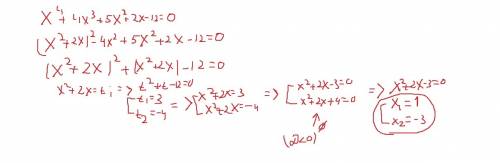 x⁴+4x³+5x²+2x-12=0
(x²+2x)²-4x²+5x²+2x-12=0
(x²+2x)²+(x²+2x)-12=0
x²+2x=t; => t²+t-12=0
[t₁=3 => [x²+2x=3 => [x²+2x-3=0 => x²+2x-3=0
t₂=-4 x²+2x=-4 x²+2x+4=0 [x₁=1
x₂=-3
(D<0) ∅